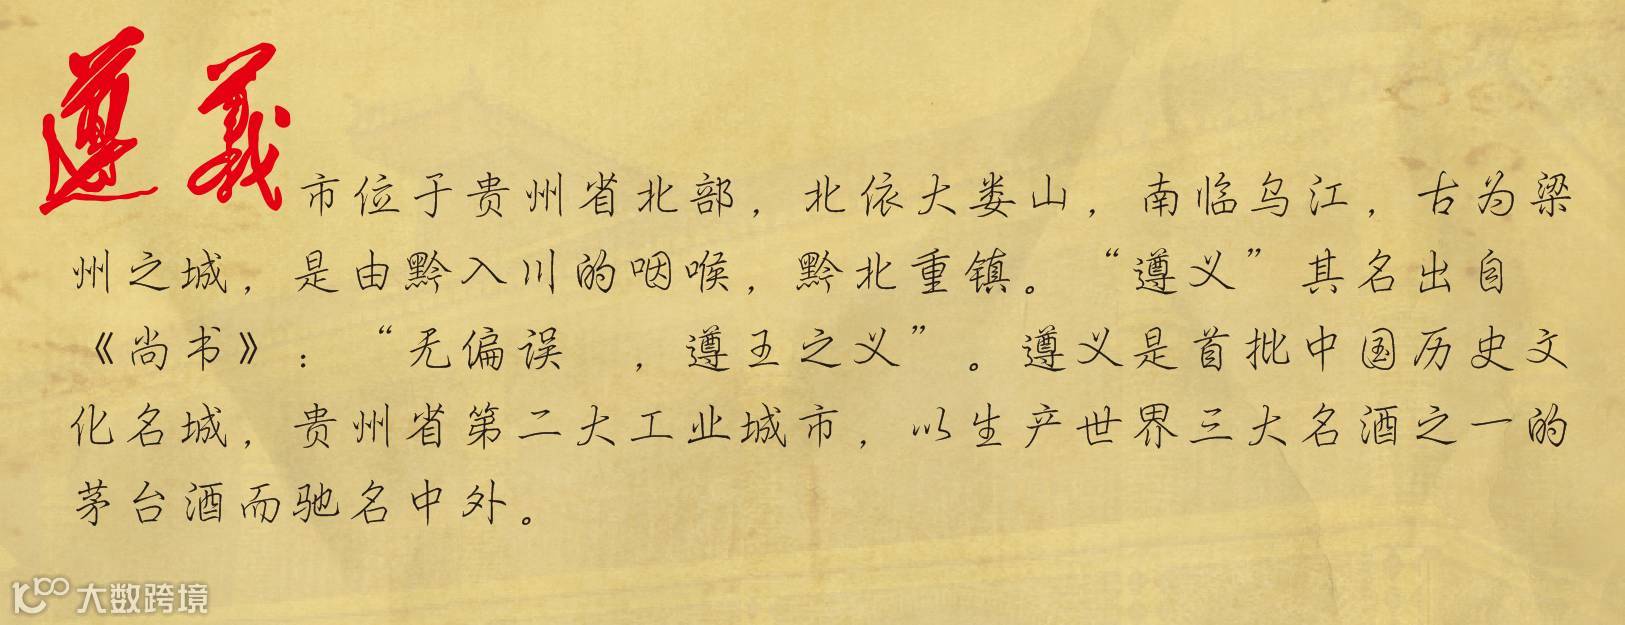 遵義市位于贵州省北部，北依大娄山，南临乌江，古为梁
州之城，是由黔入川的咽喉，黔北重镇。“遵义”其名出自
《尚书》：“无偏误　，遵王之义”。遵义是首批中国历史文
化名城，贵州省第二大工业城市，以生产世界三大名酒之一的
茅台酒而驰名中外。
大数跨境